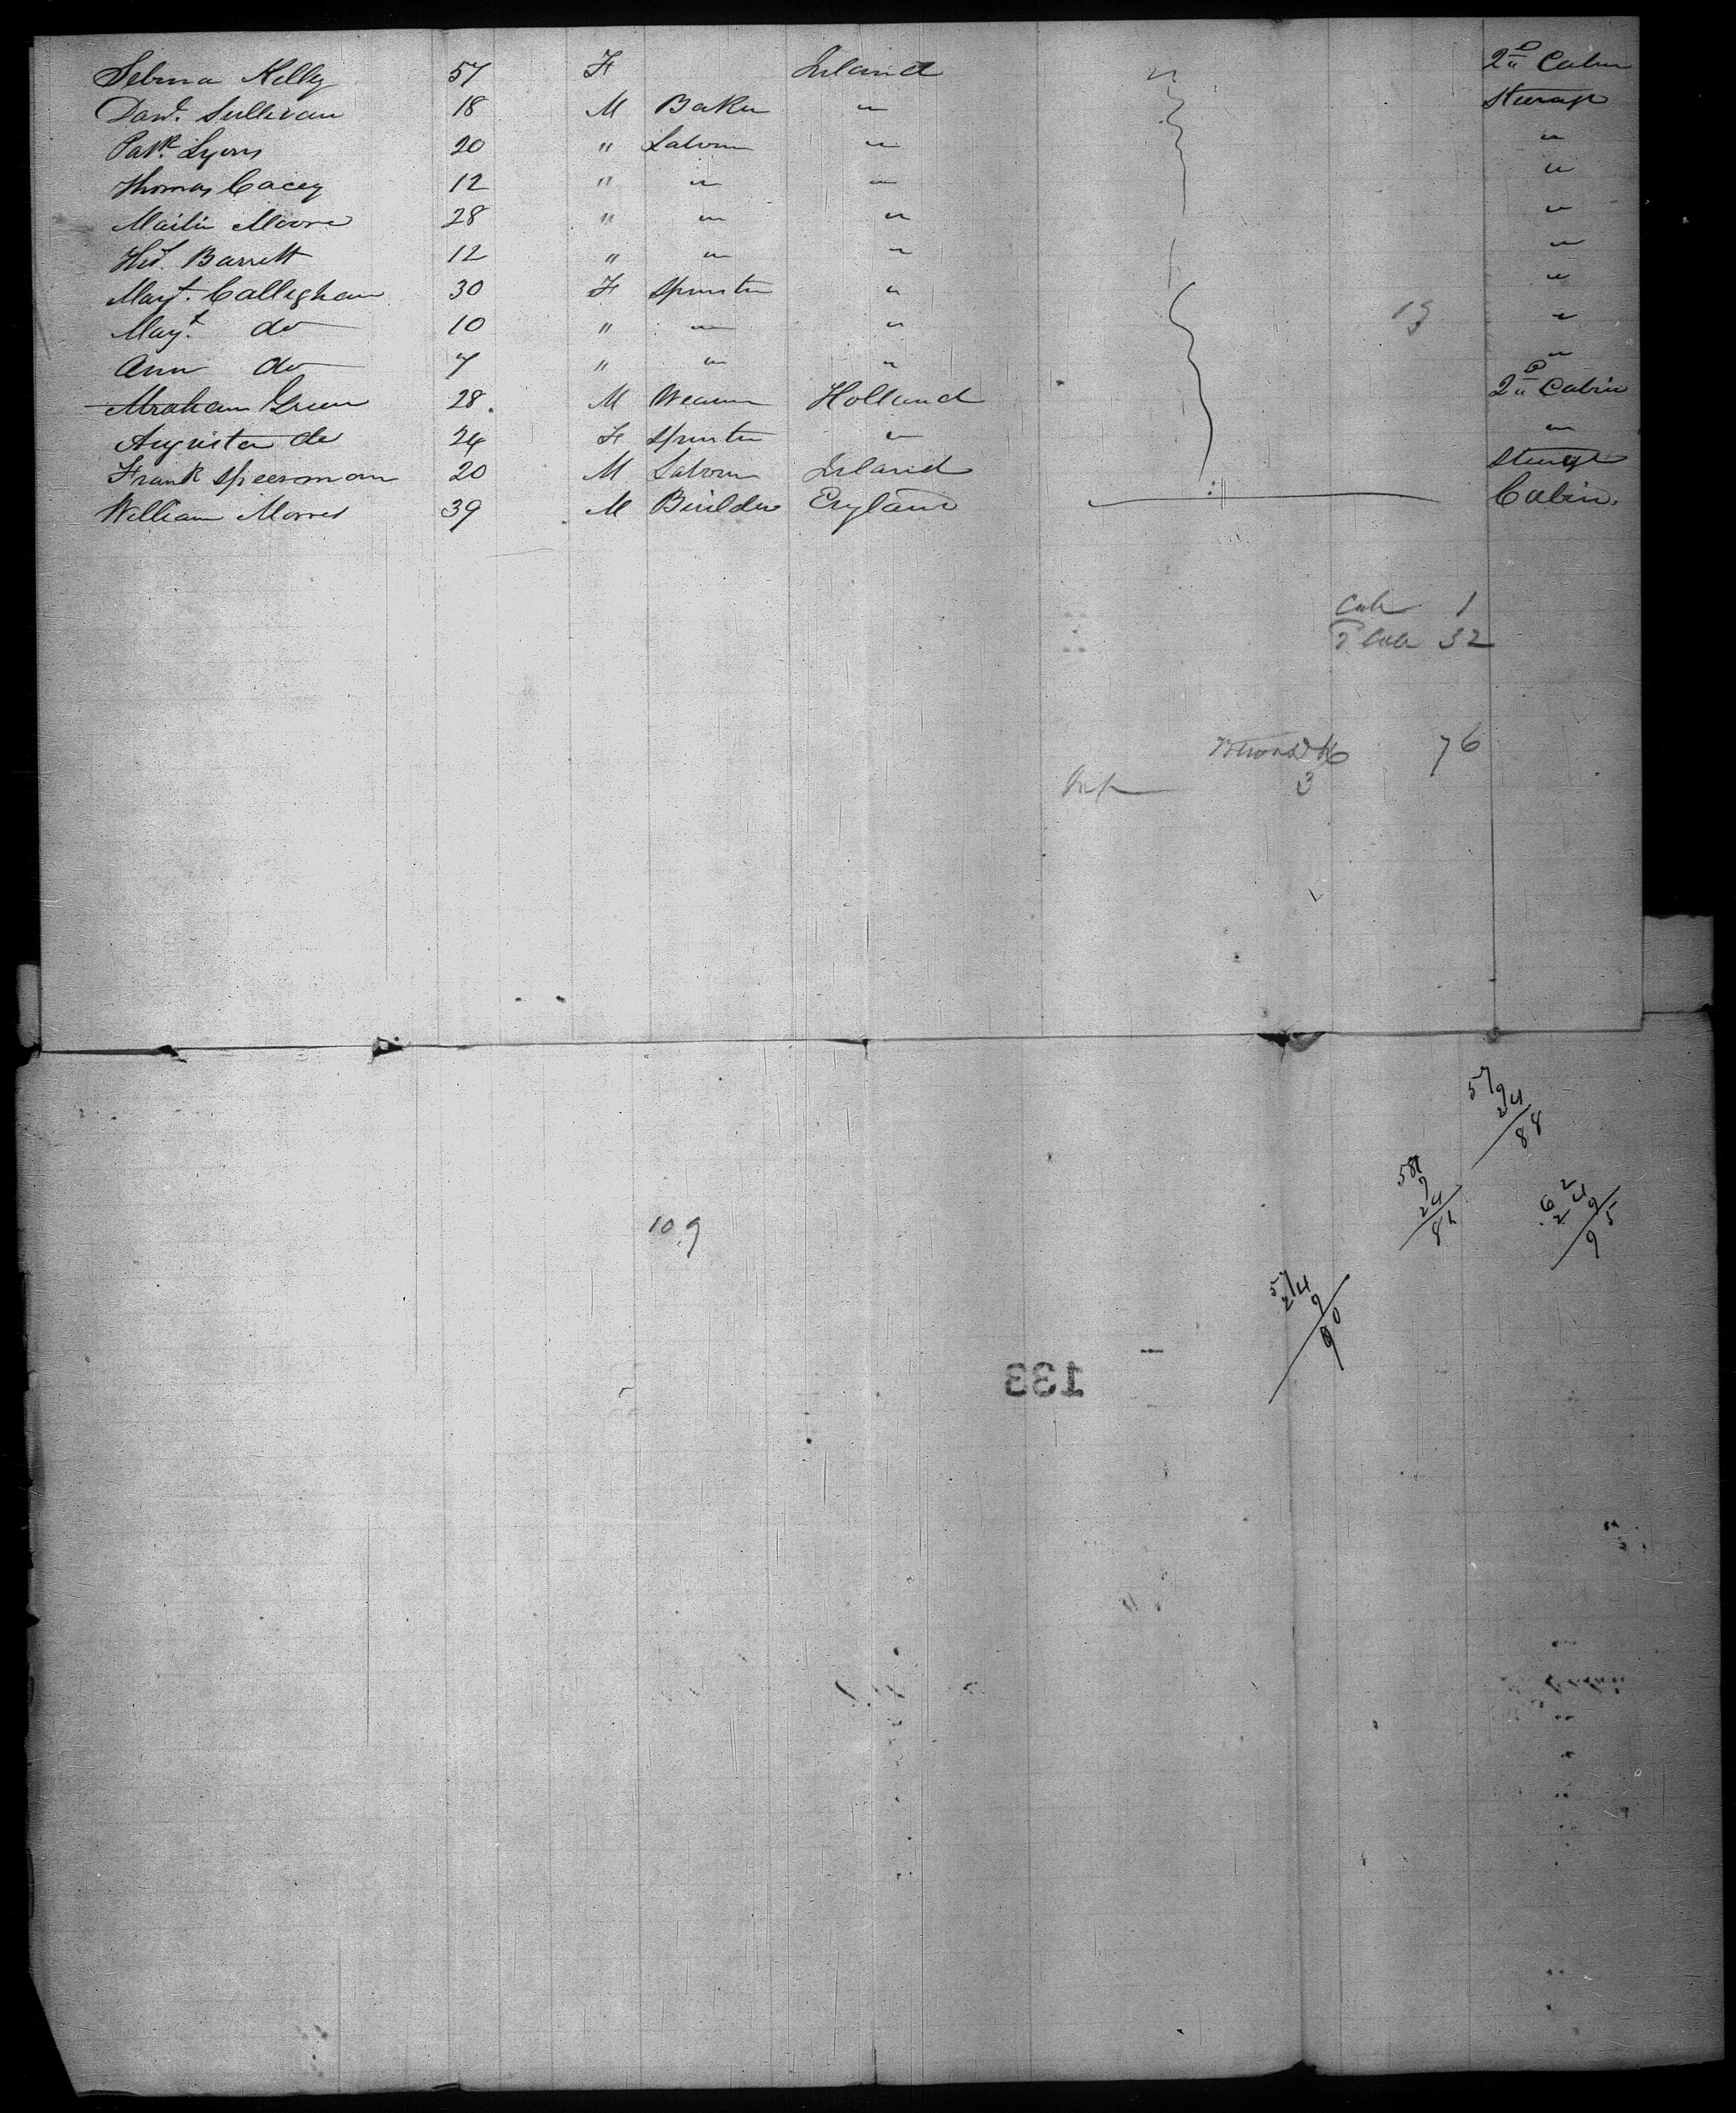 Selma Kelly 57 F Ireland 2nd Cabin
Danl. Sullivan 18 M Baker " Steerage
Patk. Lyons 20 " Laborer " "
Thomas Cacey 12 " " " "
Martin Moore 28 " " " "
Barrett 12 " " " "
Margt. Calleghan 30 F Spinster " "
Margt. do 10 " " " 19 "
Ann do 7 " " " "
Abraham Green 28 M Weaver Holland 2nd Cabin
Augusta do 24 F Spinster " "
Frank Speersman 20 M Laborer Ireland Steerage
William Morris 39 M Builder England Cabin.
Cab 1
2 Cab 32
76
Inf 3
57
9
24
88
58
9
24
81
62
24
9
95
10.9
57
24
9
90
133